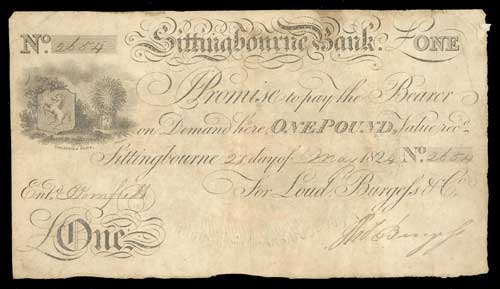 No. 2654 Sittingbourne Bank. £ONE
I Promise to pay the Bearer
on Demand here, ONE POUND, Value recd.
Sittingbourne 28 day of May 1824 No. 2654
Entd.
For Loud, Burgess & Co.
£One